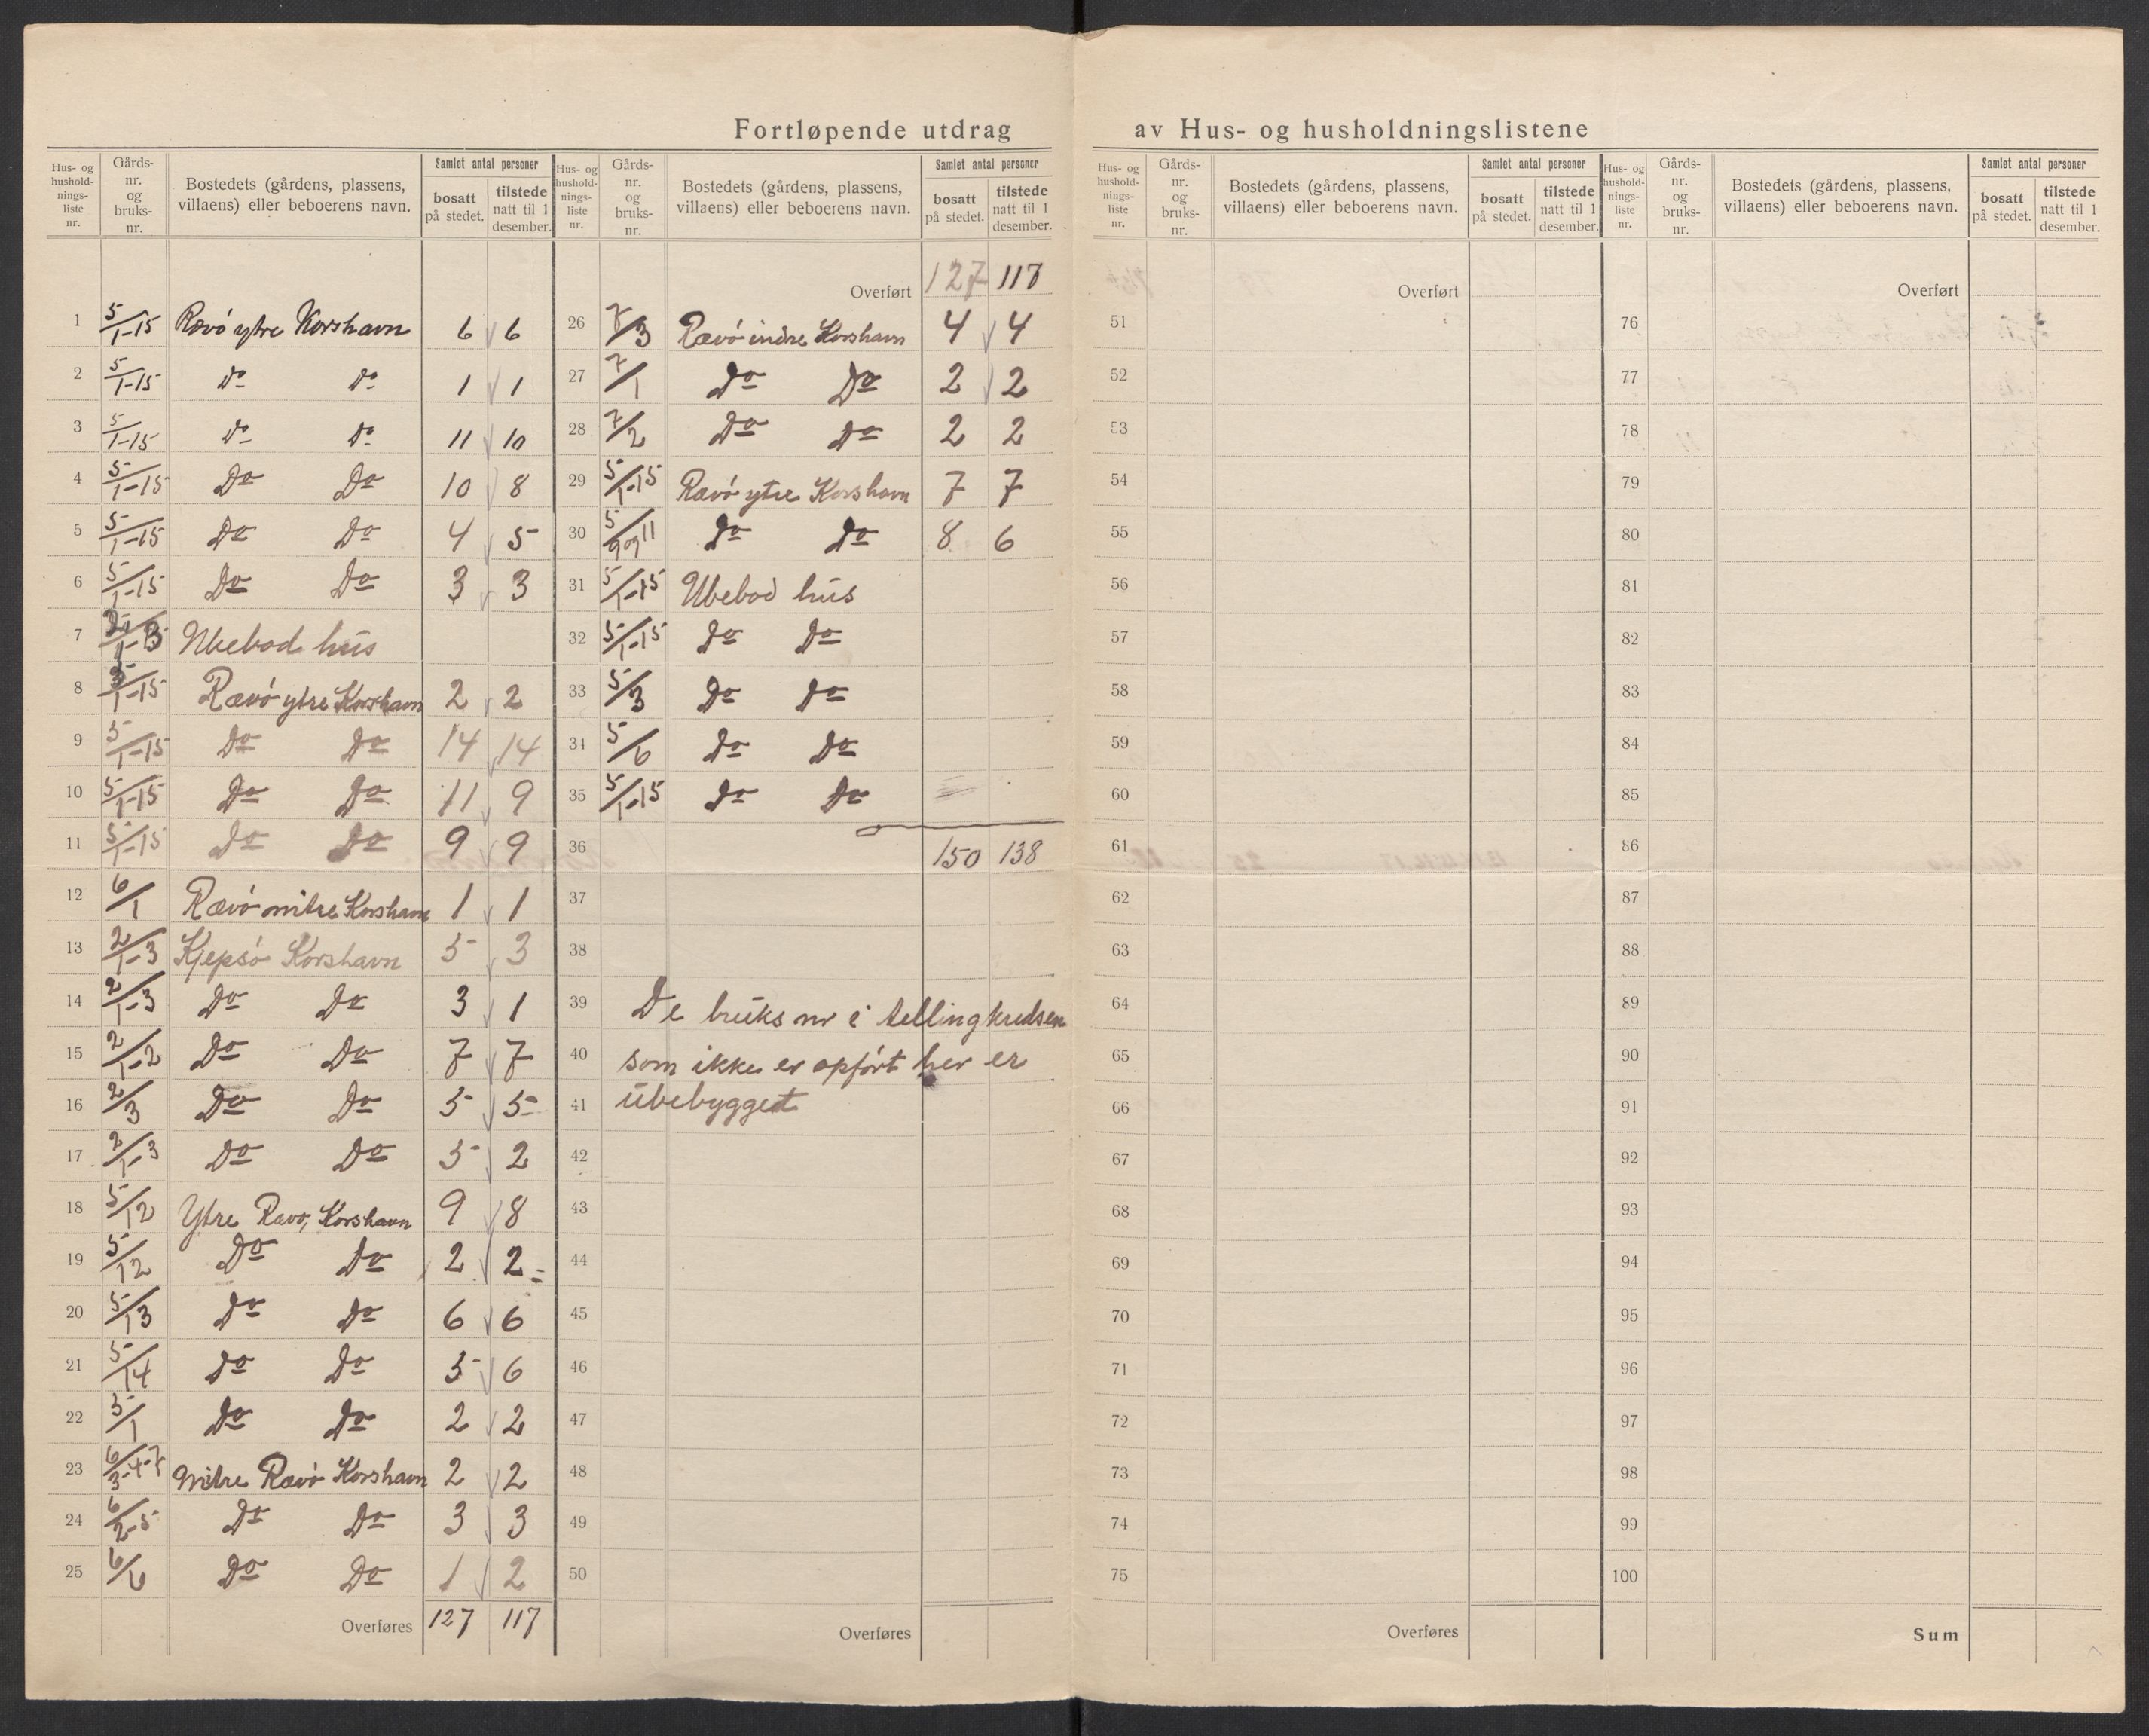 Fortløpende utdrag av Hus- og husholdningslistene
Hus- og husholdnings-liste nr. | Gårds-nr. og bruks-nr. | Bostedets (gårdens, plassens, villaens) eller beboerens navn. | Samlet antal personer bosatt på stedet. | tilstede natt til 1 desember.
1 5/1-15 Rævø ytre Korshavn 6 6
2 5/1-15 Do Do 1 1
3 5/1-15 Do Do 11 10
4 5/1-15 Do Do 10 8
5 5/1-15 Do Do 4 5
6 5/1-15 Do Do 3 3
7 Ubebod hus
8 5/1-15 Rævø ytre Korshavn 2 2
9 5/1-15 Do Do 14 14
10 5/1-15 Do Do 11 9
11 5/1-15 Do Do 9 9
12 6/1 Rævø mitre Korshavn 1 1
13 2/1-3 Kjepsø Korshavn 5 3
14 2/1-3 Do Do 3 1
15 2/1-2 Do Do 7 7
16 2/3 Do Do 5 5
17 2/1-3 Do Do 5 2
18 5/12 Ytre Rævø, Korshavn 9 8
19 5/12 Do Do 2 2
20 5/13 Do Do 6 6
21 5/14 Do Do 5 6
22 5/1 Do Do 2 2
23 6/3-4-7 Mitre Rævø Korshavn 2 2
24 6/2-5 Do Do 3 3
25 6/6 Do Do 1 2
Overføres 127 117
Hus- og husholdnings-liste nr. | Gårds-nr. og bruks-nr. | Bostedets (gårdens, plassens, villaens) eller beboerens navn. | Samlet antal personer bosatt på stedet. | tilstede natt til 1 desember.
Overført 127 117
26 7/3 Rævø indre Korshavn 4 4
27 7/1 Do Do 2 2
28 7/2 Do Do 2 2
29 5/1-15 Rævø ytre Korshavn 7 7
30 5/9 og 11 Do Do 8 6
31 5/1-15 Ubebod hus
32 5/1-15 Do Do
33 5/3 Do Do
34 5/6 Do Do
35 5/1-15 Do Do
36 150 138
37
38
39 De bruks nr i tellingkredsen
40 som ikke er opført her er
41 ubebygget
42
43
44
45
46
47
48
49
50
Overføres
Hus- og husholdnings-liste nr. | Gårds-nr. og bruks-nr. | Bostedets (gårdens, plassens, villaens) eller beboerens navn. | Samlet antal personer bosatt på stedet. | tilstede natt til 1 desember.
Overført
51
52
53
54
55
56
57
58
59
60
61
62
63
64
65
66
67
68
69
70
71
72
73
74
75
Overføres
Hus- og husholdnings-liste nr. | Gårds-nr. og bruks-nr. | Bostedets (gårdens, plassens, villaens) eller beboerens navn. | Samlet antal personer bosatt på stedet. | tilstede natt til 1 desember.
Overført
76
77
78
79
80
81
82
83
84
85
86
87
88
89
90
91
92
93
94
95
96
97
98
99
100
Sum